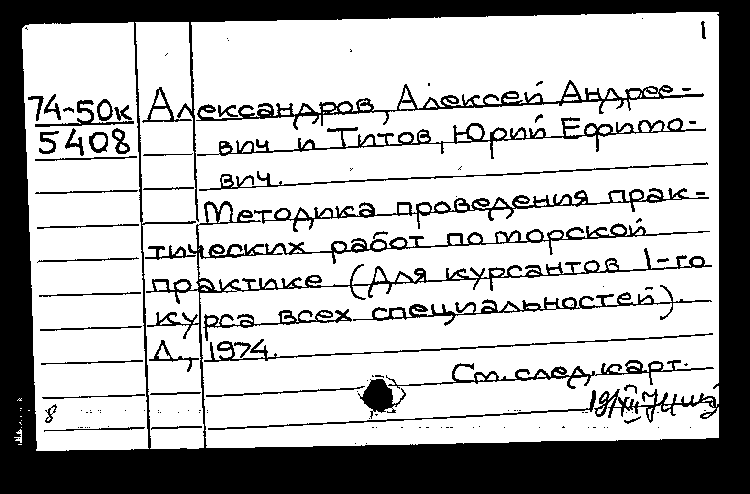 1
74-50к Александров, Алексей Андрее-
5408 вич и Титов, Юрий Ефимо-
вич.
Методика проведения прак-
тических работ по морской
практике (Для курсантов 1-го
курса всех специальностей).
Л., 1974.
См. след. карт.
8